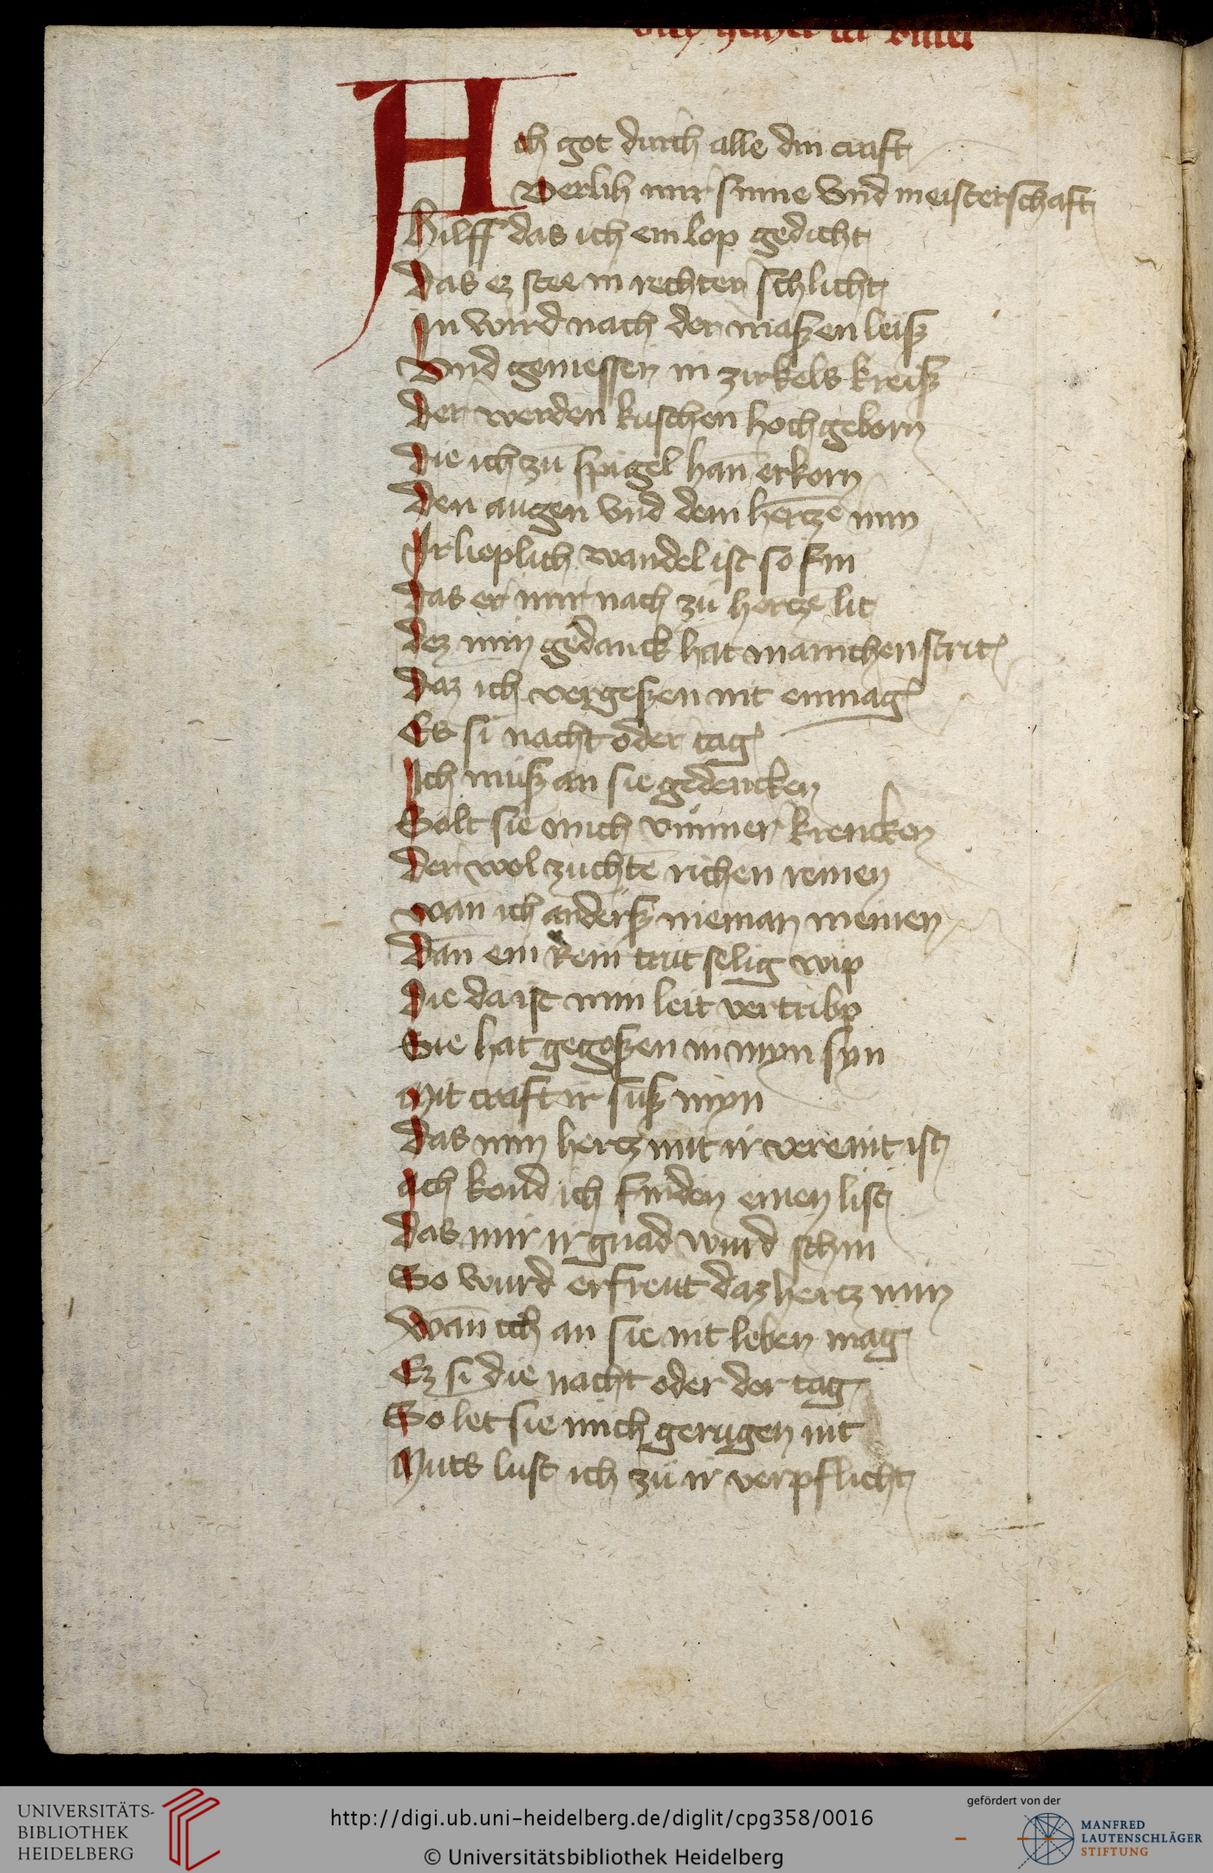 Hch got durch alle din craft
Verlih mir sinne vnd meisterschaft
Hilff das ich ein lop gedicht
Das ez stee in rechter schlicht
In wird nach der maßen leiß
Vnd gemessen in zirkels kreiß
Der werden kuschen hochgeborn
Die ich zu spigel han erkorn
Den augen vnd dem hertze min
Ir lieplich wandel ist so fin
Das er mir nach zu hertze lit
Dez min gedanck hat manichen strit
Daz ich vergeßen nit enmag
Es si nacht oder tag
Ich muß an sie gedencken
Solt sie mich vmmer krencken
Der wol zuchte richen reinen
Wan ich anderß nieman meinen
Dan ein Rein trut selig wip
Die da ist min leit vertribp
Sie hat gegoßen in myn syn
Mit craft ir suß myn
Das min hertz mit ir vereint ist
Ach kond ich finden einen list
Das mir ir gnad wurd schin
So wurd erfreut daz hertz min
Wan ich an sie nit leben mag
Ez si die nacht oder der tag
So let sie mich gerugen nit
Muts lust ich zu ir verpflicht
UNIVERSITÄTS-
BIBLIOTHEK
HEIDELBERG
http://digi.ub.uni-heidelberg.de/diglit/cpg358/0016
© Universitätsbibliothek Heidelberg
gefördert von der
MANFRED
LAUTENSCHLÄGER
STIFTUNG